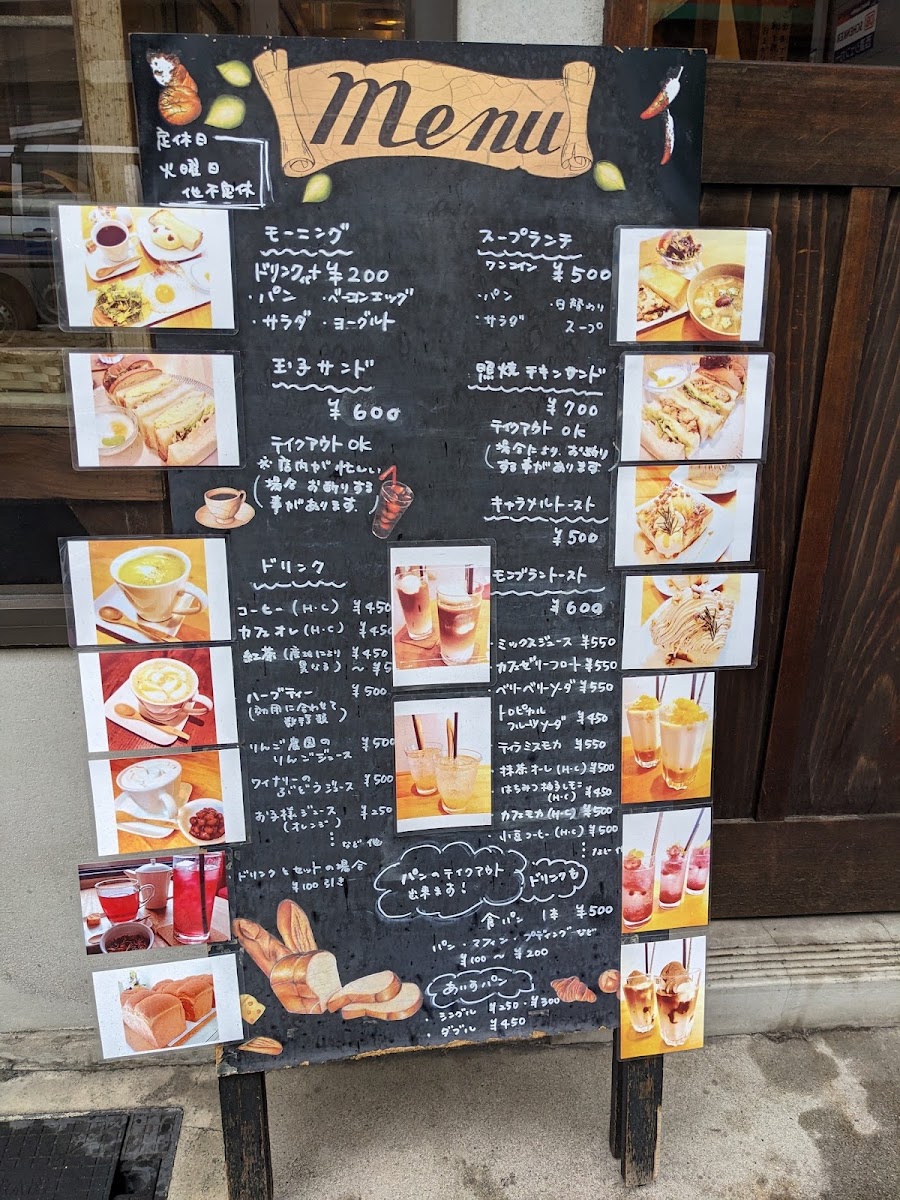 Menu
定休日
火曜日
他不定休
モーニング
ドリンク付+¥200
・パン ・ベーコンエッグ
・サラダ ・ヨーグルト
玉子サンド
¥600
テイクアウトOK
※店内が忙しい
場合 お断りする
事があります.
ドリンク
コーヒー(H・C) ¥450
カフェオレ(H・C) ¥450
紅茶(産地により ¥450
異なる) ~ ¥5
ハーブティー ¥500
(効用に合わせて
数種類)
りんご農園の ¥500
りんごジュース
ワイナリーの ¥500
ぶどうジュース
お子様ジュース ¥250
(オレンジ)
など他
ドリンクとセットの場合
¥100引き
スープランチ
ワンコイン ¥500
・パン ・日替わり
・サラダ スープ
照焼チキンサンド
¥700
テイクアウトOK
(場合により、お断り
する事があります)
キャラメルトースト
¥500
モンブラントースト
¥600
・ミックスジュース ¥550
・カフェゼリーフロート ¥550
・ベリーベリーソーダ ¥550
・トロピカル
フルーツソーダ ¥450
・ティラミスモカ ¥550
・抹茶オーレ(H・C) ¥500
・はちみつ柚子レモン
(H・C) ¥450
・カフェモカ(H・C) ¥500
・小豆コーヒー(H・C) ¥500
など
パンのテイクアウト
出来ます!
ドリンクも
食パン 1本 ¥500
パン・マフィン・プディングなど
¥100~¥200
あいすパン
・シングル ¥250・¥300
・ダブル ¥450